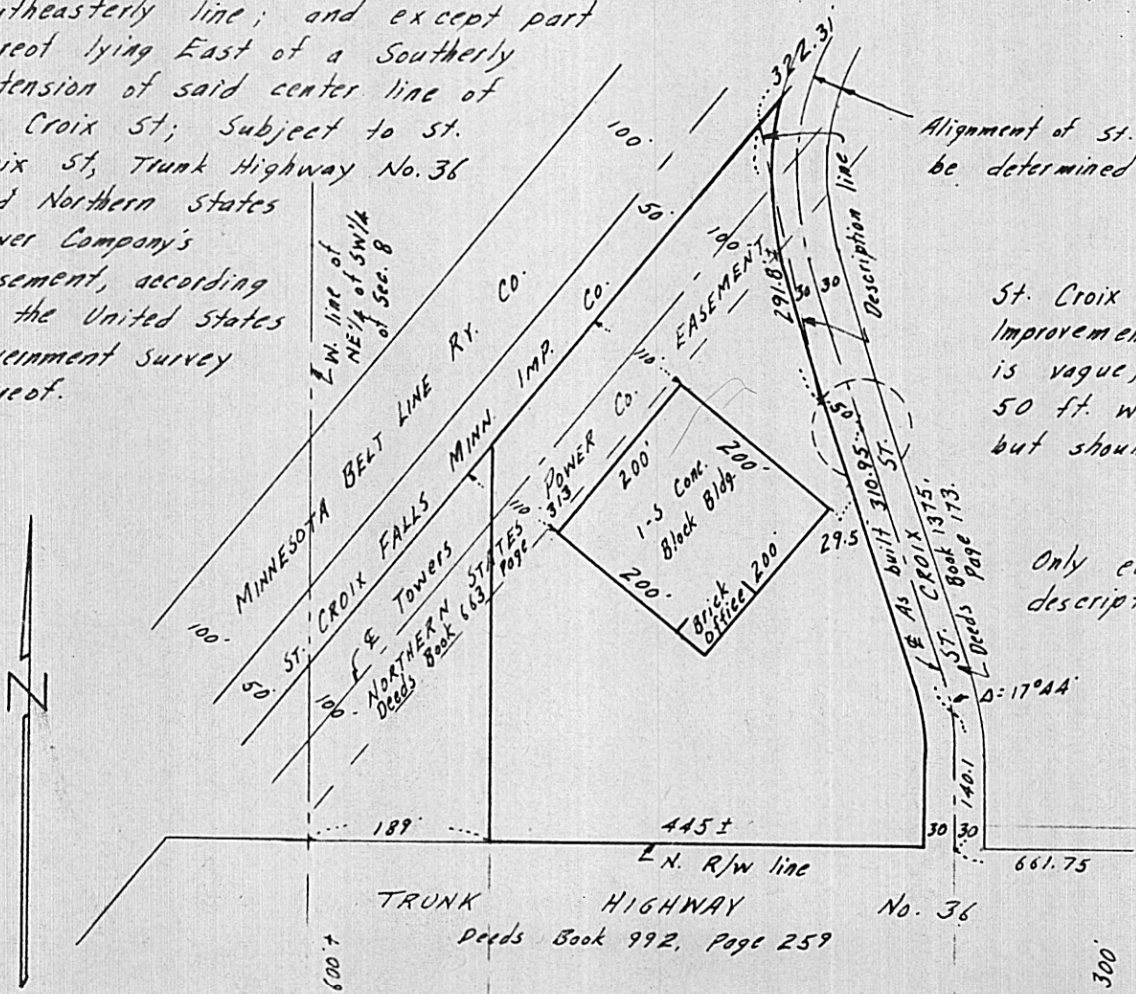 utheasterly line; and except part
reof lying East of a Southerly
tension of said center line of
Croix St; Subject to St.
ix St, Trunk Highway No. 36
d Northern States
wer Company's
sement, according
the United States
vernment Survey
reof.
Alignment of St.
be determined
St. Croix
Improvemen
is vague,
50 ft. w
but shou
Only e
descript
322.31
100.
50.
W. line of
NE 1/4 of SW 1/4
of Sec. 8
MINNESOTA BELT LINE RY. CO.
100.
ST. CROIX FALLS MINN. IMP. CO.
50.
℄ Towers
100.
100.
NORTHERN STATES POWER Co. EASEMENT
Deeds Book 663 Page 313
110.
110.
291.8±
30 30
Description line
50
200'
200'
1-S Conc.
Block Bldg.
200.
200'
Brick
Office
29.5
℄ As built 310.95
ST. CROIX ST.
Deeds Book 1375,
Page 173.
Δ=17°44'
140.1
30 30
189'
445±
661.75
N. R/W line
TRUNK HIGHWAY No. 36
Deeds Book 992, Page 259
600'±
300'
N